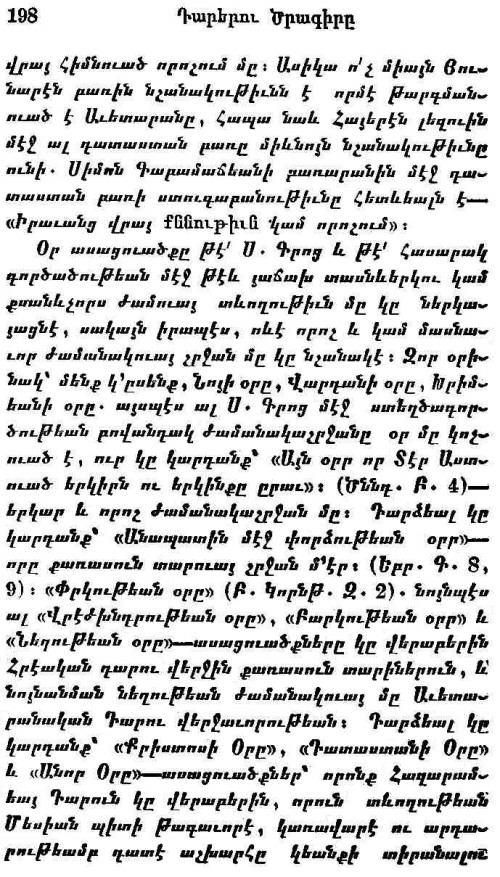 198 Դարերու Ծրագիրը
վրայ հիմնուած որոշում մը։ Ասիկա ո՛չ միայն Յու-
նարէն բառին նշանակութիւնն է որմէ թարգման-
ուած է Աւետարանը, հապա նաև Հայերէն լեզուին
մէջ ալ դատաստան բառը միևնոյն նշանակութիւնը
ունի. Սիմոն Գարամաճեանի բառարանին մէջ դա-
տաստան բառի ստուգաբանութիւնը հետևեալն է—
«Իրաւանց վրայ քննութիւն կամ որոշում»։
Օր ասացուածքը թէ՛ Ս. Գրոց և թէ՛ հասարակ
գործածութեան մէջ թէև յաճախ տասներկու կամ
քսանևչորս ժամուայ տևողութիւն մը կը ներկա-
յացնէ, սակայն իրապէս, ոևէ որոշ և կամ մասնա-
ւոր ժամանակուայ շրջան մը կը նշանակէ։ Զոր օրի-
նակ՝ մենք կ՚ըսենք, Նոյի օրը, Վարդանի օրը, Խրիմ-
եանի օրը. այսպէս ալ Ս. Գրոց մէջ ստեղծագոր-
ծութեան բովանդակ ժամանակաշրջանը օր մը կոչ-
ուած է, ուր կը կարդանք՝ «Այն օրը որ Տէր Աստ-
ուած երկիրն ու երկինքը ըրաւ»։ (Ծննդ. Բ. 4)—
երկար և որոշ ժամանակաշրջան մը։ Դարձեալ կը
կարդանք՝ «Անապատին մէջ փորձութեան օրը»—
որը քառասուն տարուայ շրջան մ՚էր։ (Եբր. Գ. 8,
9)։ «Փրկութեան օրը» (Բ. Կորնթ. Զ. 2). նոյնպէս
ալ «Վրէժխնդրութեան օրը», «Բարկութեան օրը» և
«Նեղութեան օրը»—ասացուածքները կը վերաբերին
Հրէական դարու վերջին քառասուն տարիներուն, և
նոյնանման նեղութեան ժամանակուայ մը Աւետա-
րանական Դարու վերջաւորութեան։ Դարձեալ կը
կարդանք՝ «Քրիստոսի Օրը», «Դատաստանի Օրը»
և «Անոր Օրը»—ասացուածքներ՝ որոնք Հազարամ-
եայ Դարուն կը վերաբերին, որուն տևողութեան
Մեսիան պիտի թագաւորէ, կառավարէ ու արդա-
րութեամբ դատէ աշխարհը կեանքի տիրանալու